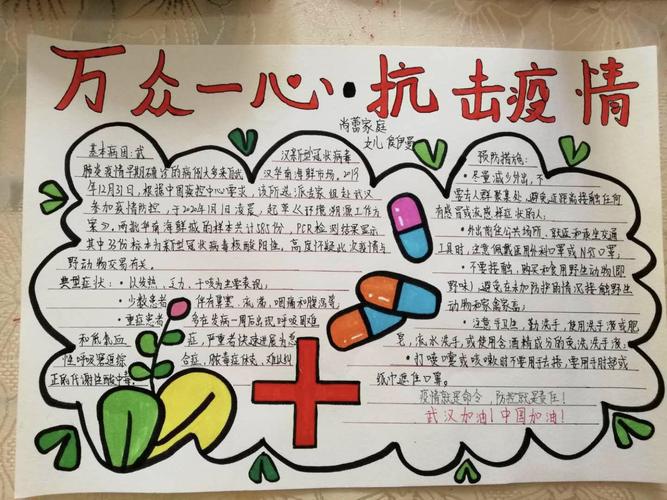 万众一心·抗击疫情
尚蕾家庭
女儿
基本病因：武汉新型冠状病毒
肺炎疫情早期确诊的病例大多来源汉华南海鲜市场。2019
年12月31日，根据中国疾控中心要求，该所选派专家组赴武汉
参加疫情防控，于2020年1月1日凌晨，起草
两批华南海鲜城的样本共计585份，PCR检测结果显示
其中33份标本为新型冠状病毒核酸阳性。高度怀疑此次疫情与
野动物交易有关。
典型症状：·以发热、乏力、干咳为主要表现；
·少数患者伴有鼻塞、流涕、咽痛和腹泻等；
·重症患者多在发病一周后出现呼吸困难
和低氧血症，严重者快速进展为急
性呼吸窘迫综合症、脓毒症休克、难以纠
正的代谢性酸中毒。
预防措施：
·尽量减少外出，不
要去人群聚集处，避免近距离接触任何
有感冒或流感样症状的人；
·外出前往公共场所、就医和乘坐交通
工具时，注意佩戴医用外科口罩或N95口罩；
·不要接触、购买和食用野生动物(即
野味)，避免在未加防护的情况接触野生
动物和家禽家畜；
·注意手卫生，勤洗手，使用洗手液或肥
皂，流水洗手，或使用含酒精成分的免洗洗手液；
·打喷嚏或咳嗽时不要用手去接，要用手肘部或
纸巾遮住口罩。
疫情就是命令，防控就是责任！
武汉加油！中国加油！